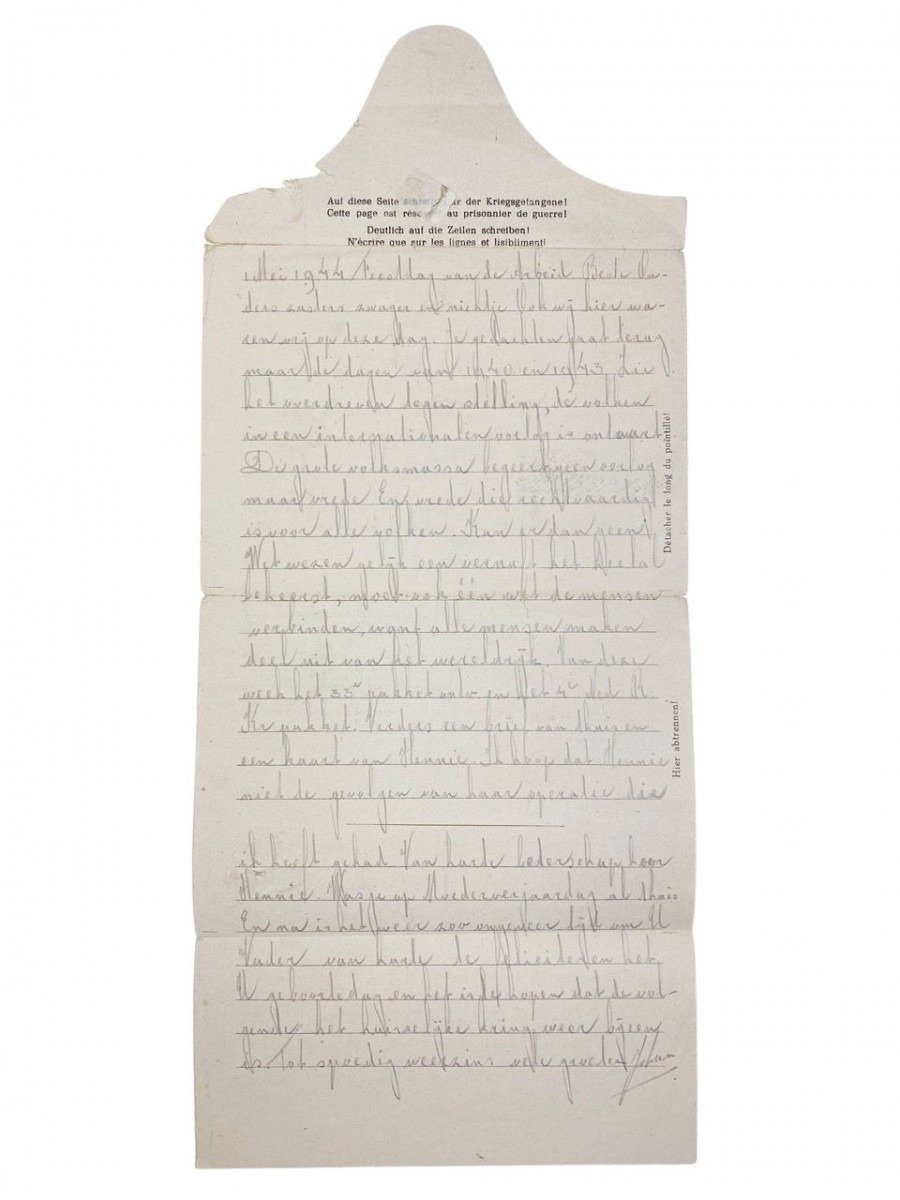 Auf diese Seite schreibt nur der Kriegsgefangene!
Cette page est réservée au prisonnier de guerre!
Deutlich auf die Zeilen schreiben!
N'écrire que sur les lignes et lisiblement!
1 Mei 1944 Feestdag van de Arbeid. Beste Ou-
ders zusters zwager en nichtje Ook wij hier wa-
ren vrij op deze dag. Je gedachten gaat terug
maar de dagen van 1940 en 1943. Zie
het overdreven tegen stelling, de volken
in een internationalen oorlog is ontaart
De grote volksmassa begeert geen oorlog
maar vrede En vrede die rechtvaardig
is voor alle volken. Kan er dan geen
Wet wezen gelijk een vernuft het heelal
beheerst, moet ook één wet de mensen
verbinden, want alle mensen maken
deel uit van het wereldrijk. Van deze
week het 33e pakket ontv. en het 4e Ned R.
Kr pakket. Verders een brief van thuis en
een kaart van Hennie. Ik hoop dat Hennie
niet de gevolgen van haar operatie die
ik heeft gehad Van harte beterschap hoor
Hennie. Was je op Moederverjaardag al thuis
En na is het weer zoo ongeveer tijd om U
Vader van harte te feliciteren het
U geboortedag en het is de hopen dat de vol-
gende het huiselijke kring weer bijeen
is. Tot spoedig weerziens vele groeten Johan
Détacher le long du pointillé!
Hier abtrennen!